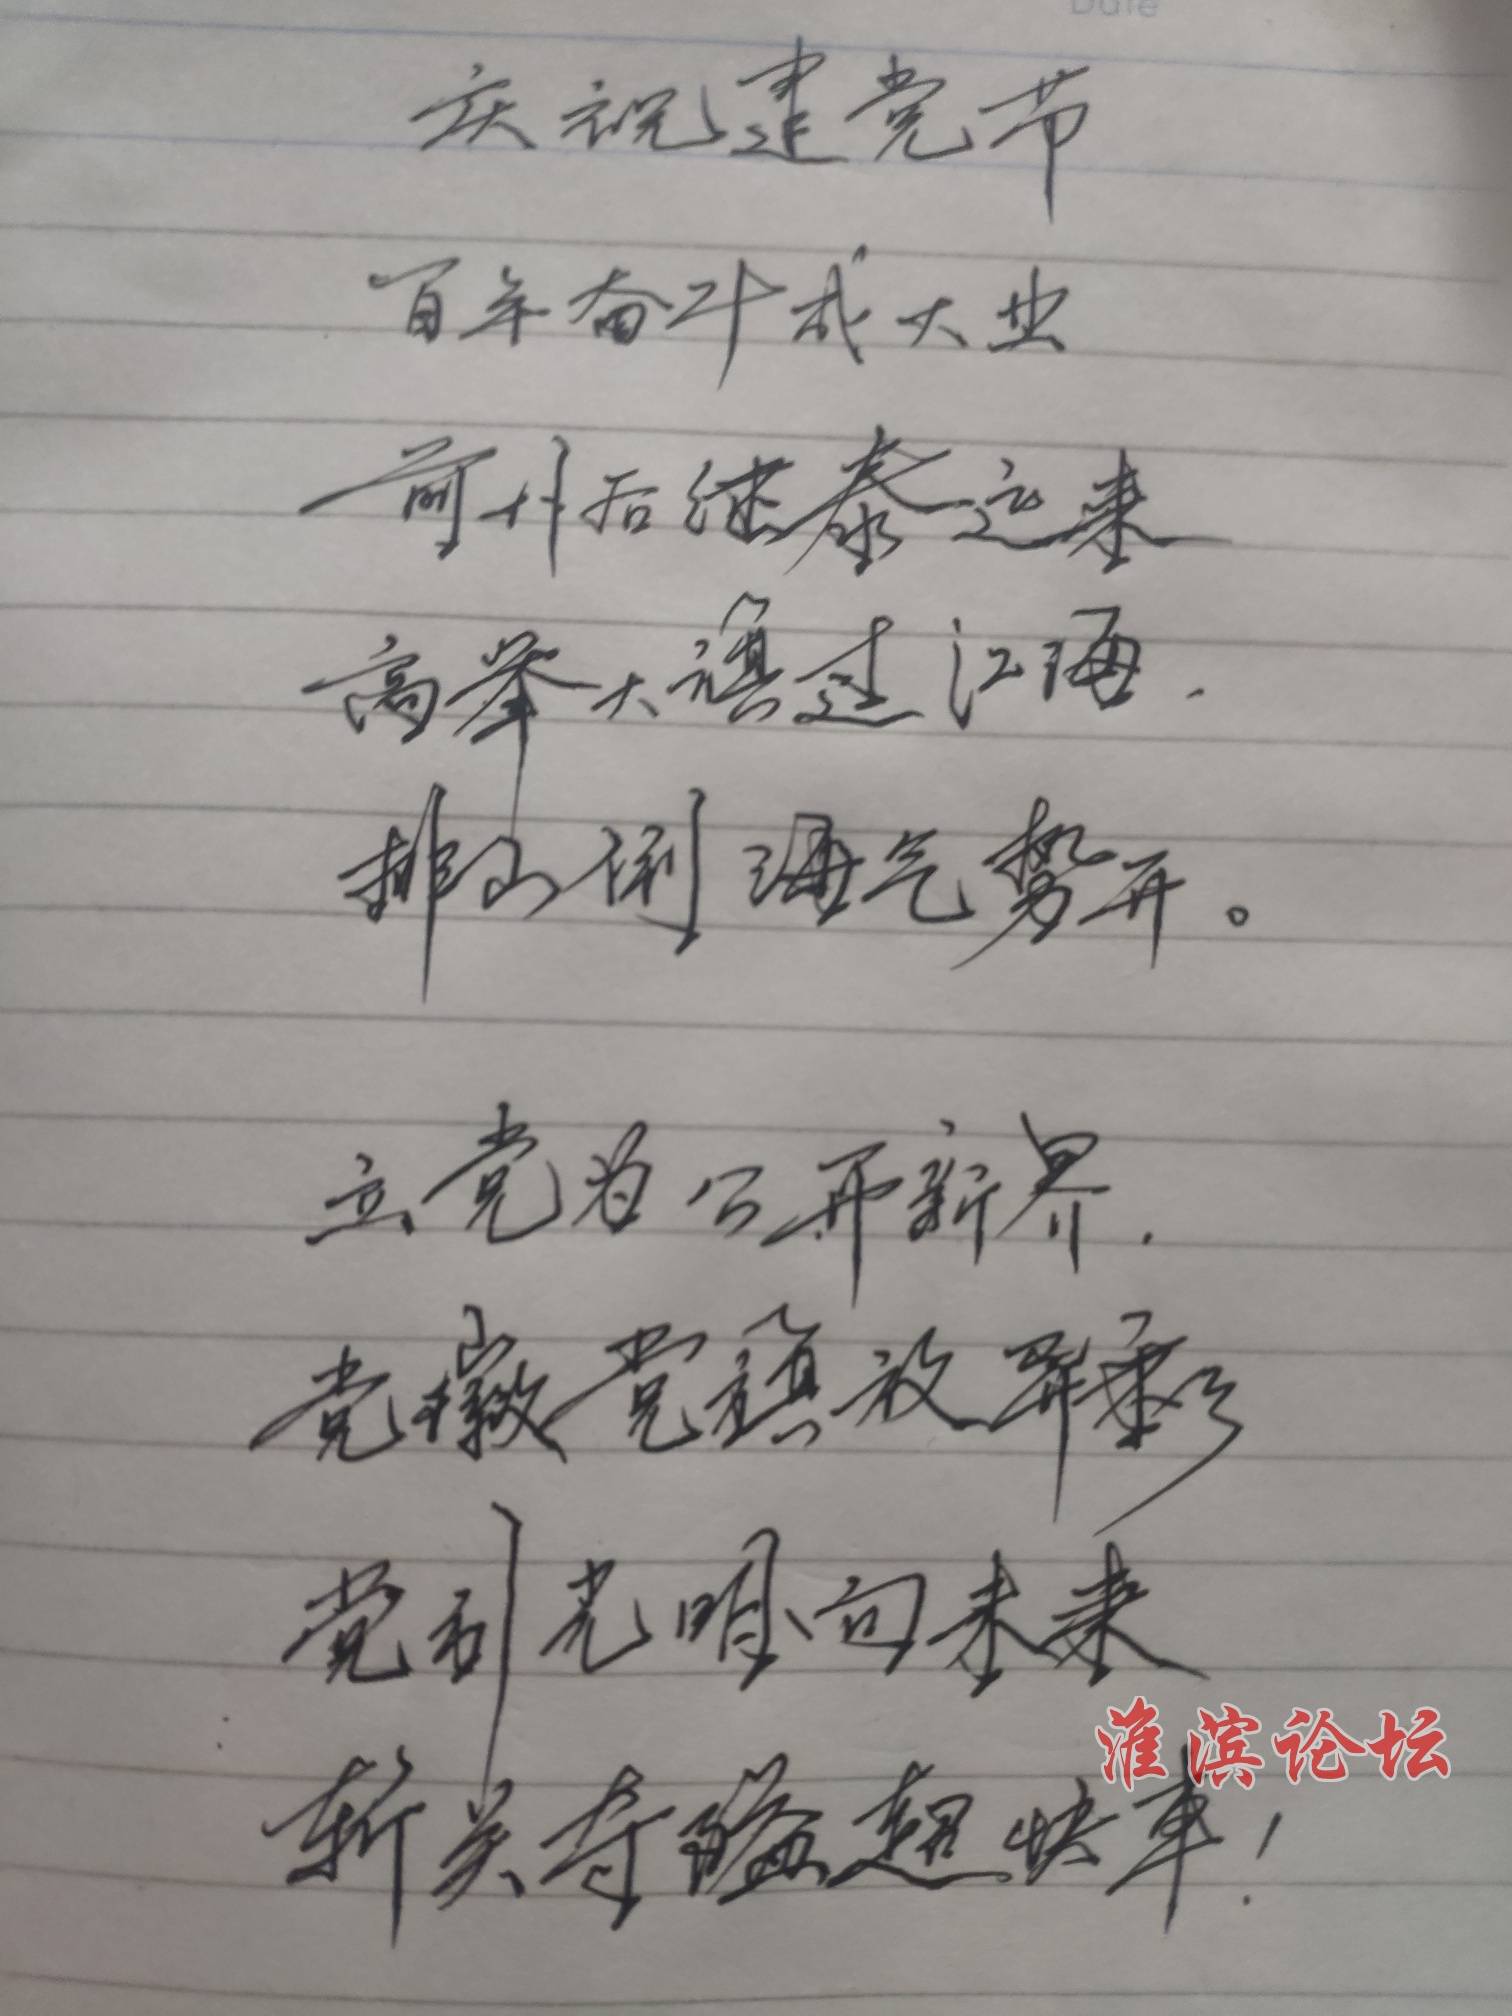 Date
庆祝建党节
百年奋斗成大业
前仆后继泰运来
高举大旗过江海.
排山倒海气势开。
立党为公开新界.
党徽党旗放异彩
党引光明向未来
斩关夺隘超快车!
淮滨论坛